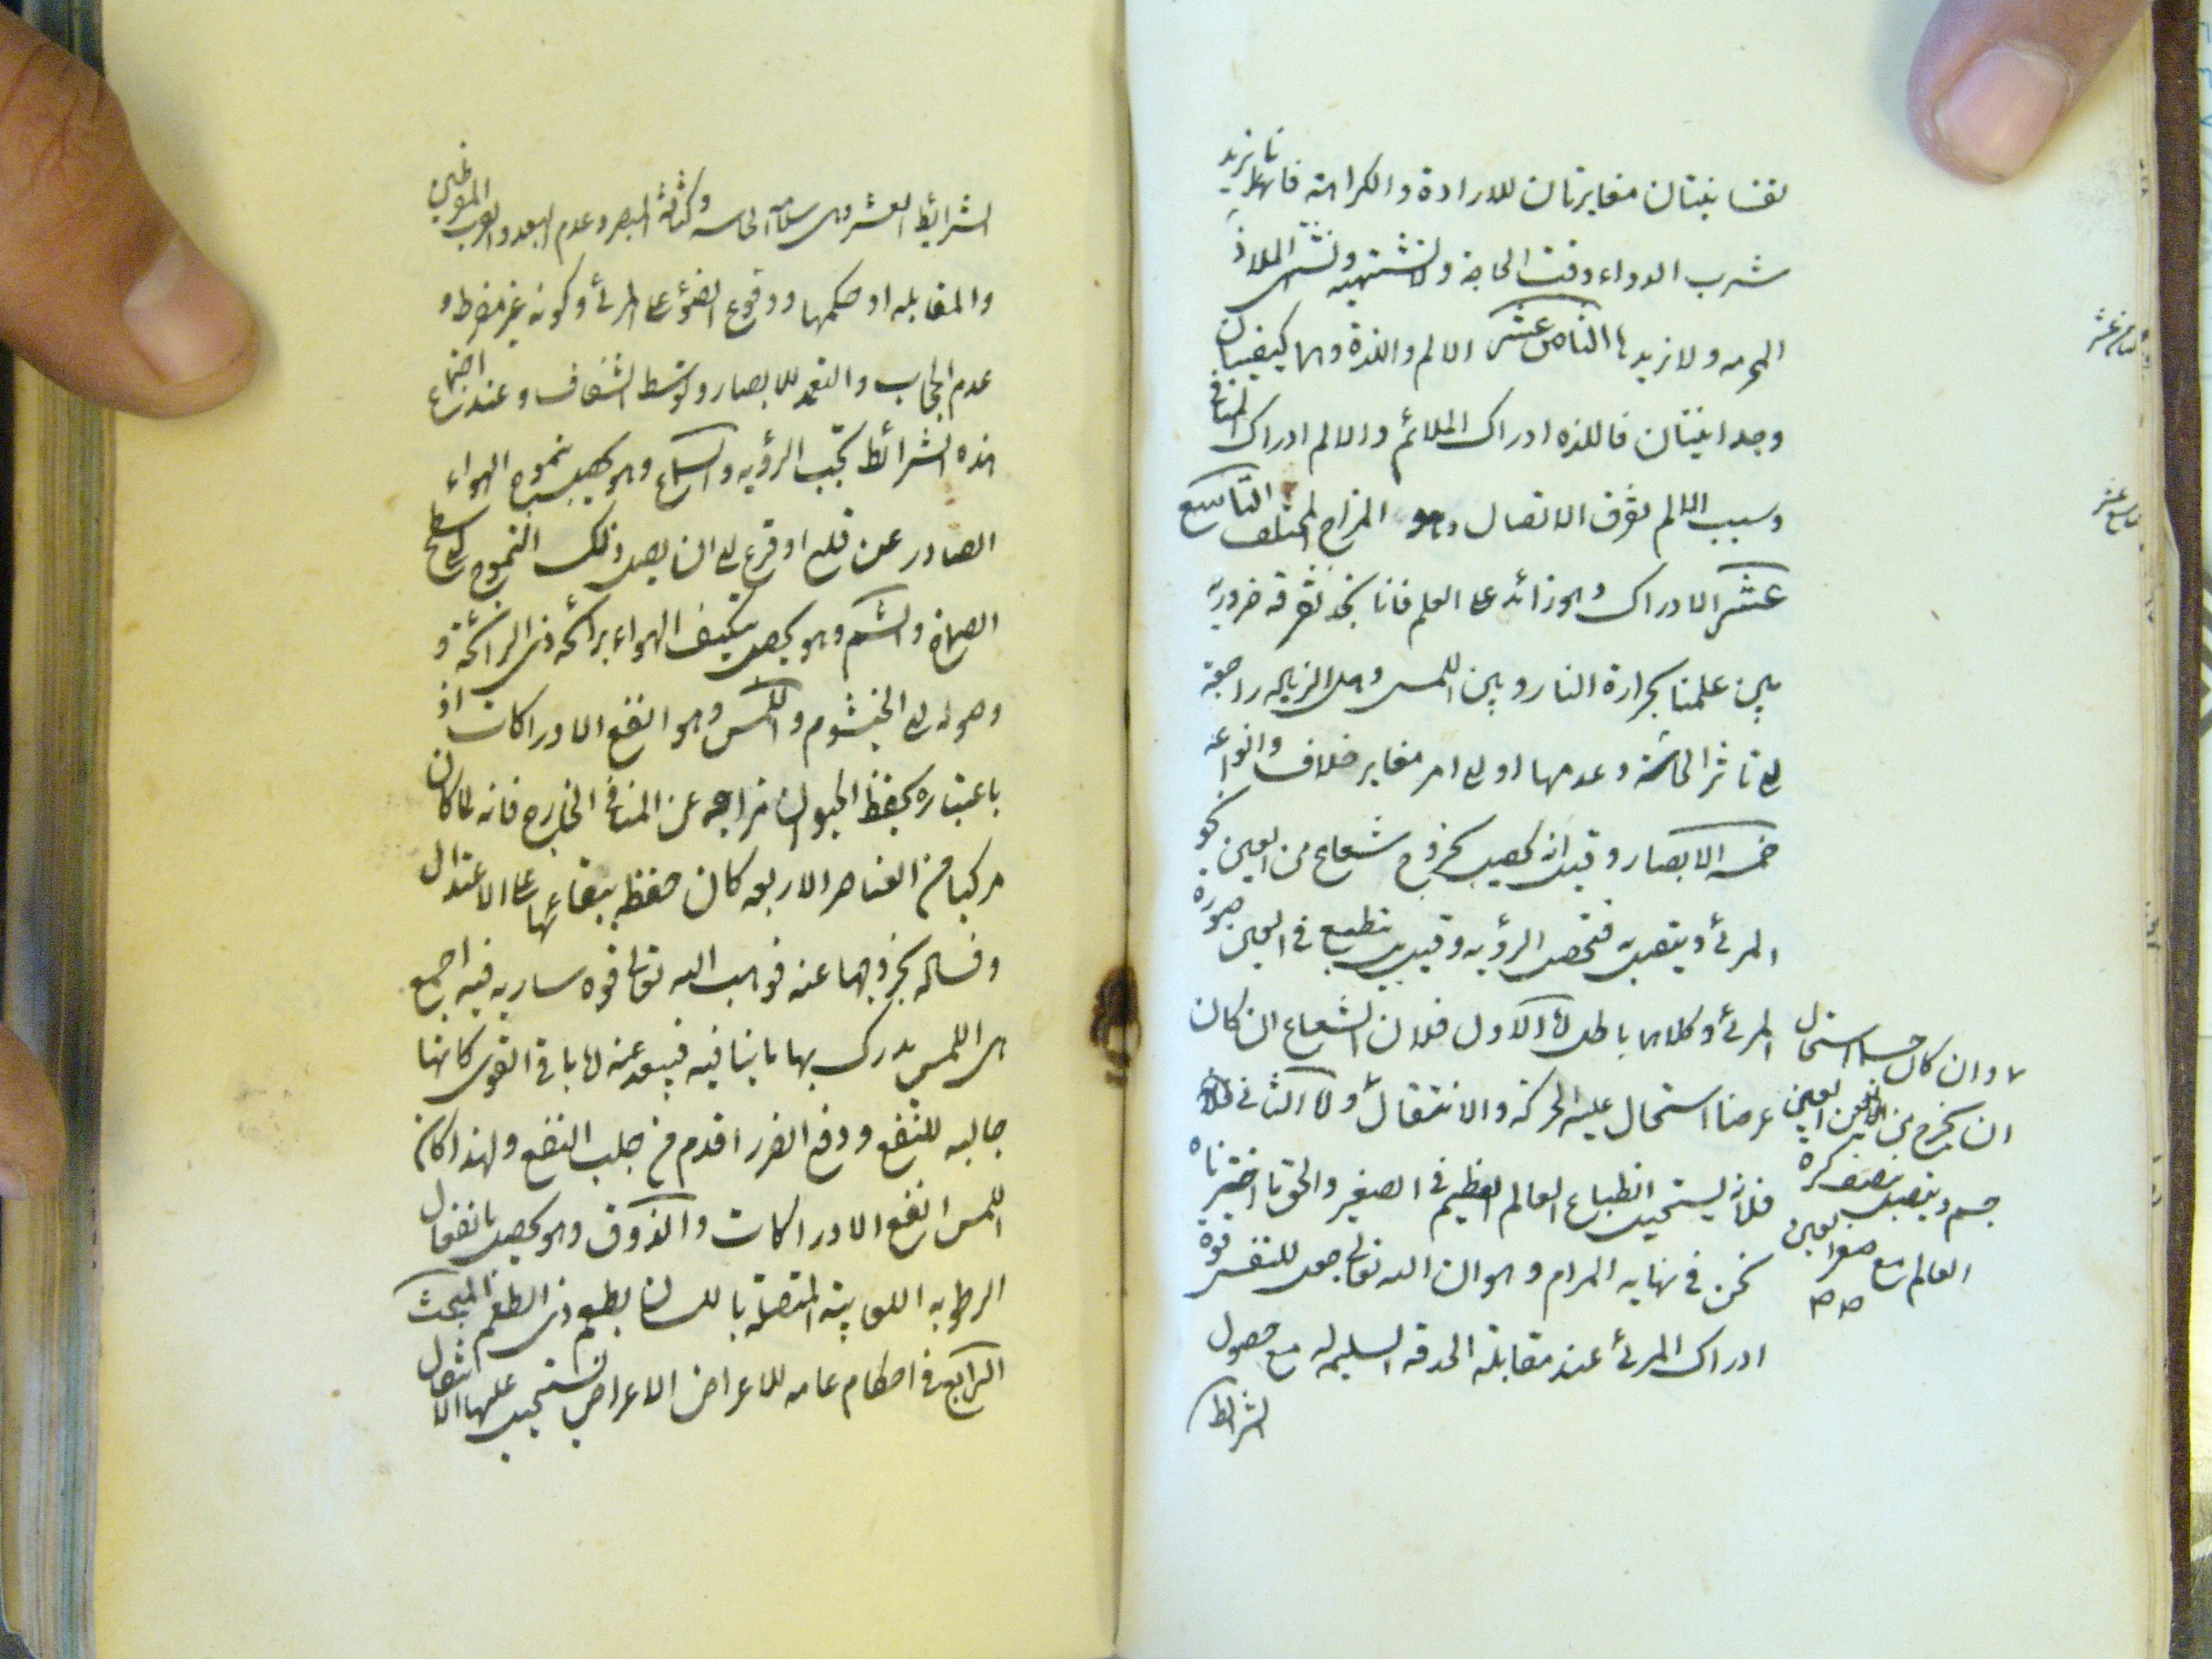 نفسانيتان مغايرتان للارادة والكراهة فانا نريد
شرب الدواء وقت الحاجة ولا نشتهيه ونشتهى الملاذ
المحرمه ولا نريدها الثامن عشر الالم واللذة وهما كيفيتان
وجدانيتان فاللذه ادراك الملائم والالم ادراك المنافى
وسبب الالم تفرق الاتصال وسوء المزاج المختلف التاسع
عشر الادراك وهو زائد على العلم فانا نجد تفرقه ضروريه
بين علمنا بحرارة النار وبين اللمس وهل الزيادة راجعة
الى تاثر الحاسة وعدمها او الى امر مغاير خلاف وانواعه
خمسه الابصار وقيل انه يحصل بخروج شعاع من العين نحو
المرئى ويتصل به فتحصل الرؤيه وقيل بل ينطبع فى العين صورة
المرئى وكلاهما باطل اما الاول فلان الشعاع ان كان
عرضا استحال عليه الحركة والانتقال واما الثانى
فلانه يستحيل انطباع العالم العظيم فى الصغير والحق ما اخترناه
نحن فى نهايه المرام وهو ان الله تعالى جعل للنفس قوة
ادراك المرئى عند مقابلة الحدقه السليمه له مع حصول
الشرائط
وان كان جسما استحال
ان يخرج من العين
جسم ويتصل بنصف كرة
العالم مع صغر العين
صح
الثامن عشر
التاسع عشر
الشرائط العشر وهى سلامة الحاسه وكثافة المبصر وعدم البعد والقرب المفرطين
والمقابله او حكمها ووقوع الضوء على المرئى وكونه غير مفرط و
عدم الحجاب والتعمد للابصار وتوسط الشفاف وعند اجتماع
هذه الشرائط تجب الرؤيه والسماع وهو يحصل بتموج الهواء
الصادر عن قلع او قرع الى ان يصل ذلك التموج الى سطح
الصماخ والشم وهو يحصل بتكيف الهواء برائحه ذى الرائحة و
وصوله الى الخيشوم واللمس وهو انفع الادراكات اذ
باعتباره يحفظ الحيوان مزاجه عن المنافى الخارج فانه لما كان
مركبا من العناصر الاربعه كان حفظه ببقائها على الاعتدال
وفساده بخروجها عنه فوهب الله تعالى قوه ساريه فيه اجمع
هى اللمس يدرك بها ما ينافيه فيبعد عنه اما باقى القوى فانها
جالبه للنفع ودفع الضرر اقدم من جلب النفع ولهذا كان
اللمس انفع الادراكات والذوق وهو يحصل بانفعال
الرطوبه اللعابية المتصلة باللسان بطعم ذى الطعم المبحث
الرابع فى احكام عامه للاعراض الاعراض يستحيل عليها الانتقال